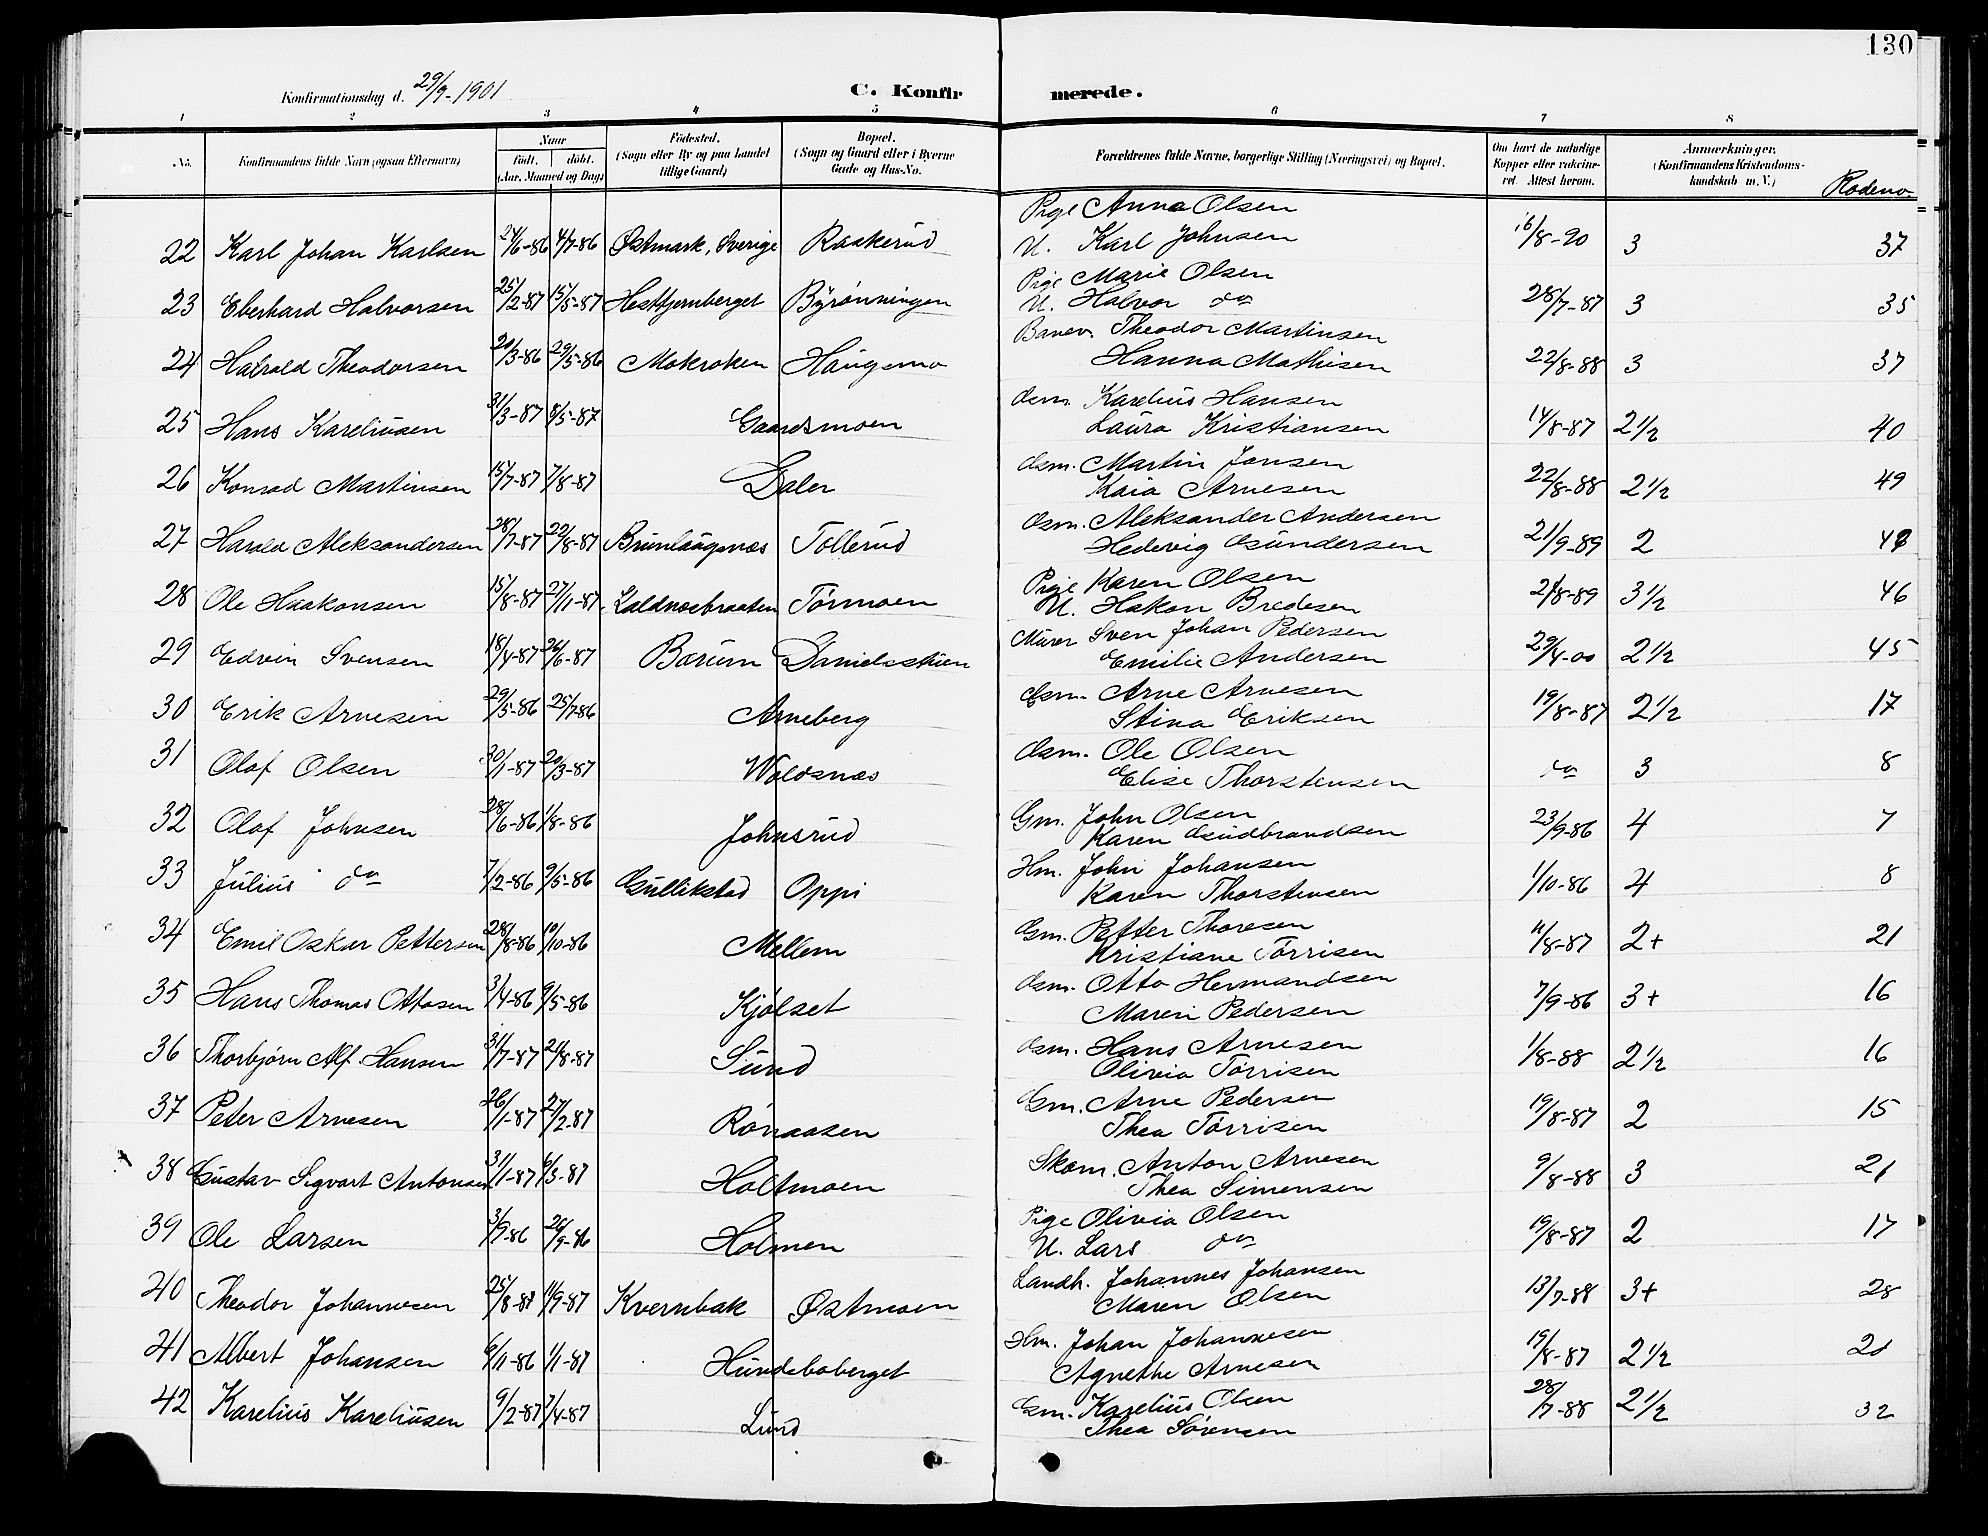 130
Konfirmationsdag d. 29/9-1901
C. Konfirmerede.
1 2 3 4 5 6 7 8
No. Konfirmandens fulde Navn (ogsaa Efternavn) Naar født. døbt. (Aar, Maaned og Dag) Fødested. (Sogn eller By og paa Landet tillige Gaard) Bopæl. (Sogn og Gaard eller i Byerne Gade og Hus-No. Forældrenes fulde Navne, borgerlige Stilling (Næringsvei) og Bopæl. Om havt de naturlige Kopper eller vakcineret. Attest herom. Anmærkninger. (Konfirmandens Kristendomskundskab m. V.) Rodeno.
Pige Anna Olsen
22 Karl Johan Karlsen 24/6-86 4/7-86 Østmark, Sverige Raskerud U. Karl Johnsen 16/8-90 3 37
Pige Marie Olsen
23 Eberhard Halvorsen 25/2-87 15/5-87 Hestkjernberget Byrønningen U. Halvor do 28/7-87 3 35
Banev. Theodor Martinsen
24 Harald Theodorsen 20/3-86 29/5-86 Mokroken Haugsmo Hanna Mathisen 22/8-88 3 37
Gsm. Karelius Hansen
25 Hans Kareliusen 31/3-87 8/5-87 Gaardsmoen Laura Kristiansen 14/8-87 2 1/2 40
Gsm. Martin Jonsen
26 Konrad Martinsen 15/7-87 7/8-87 Daler Kaia Arnesen 22/8-88 2 1/2 49
Gsm. Aleksander Andersen
27 Harald Aleksandersen 28/7-87 22/8-87 Brunlaugsnæs Tollerud Hedevig Gundersen 21/9-89 2
Pige Karen Olsen
28 Ole Haakonsen 15/8-87 27/11-87 Kaldnæsbraaten Tørmoen U. Hakon Bredesen 21/8-89 3 1/2 46
Murer Sven Johan Pedersen
29 Edvin Svensen 18/4-87 26/6-87 Bærum Danielsstuen Emilie Andersen 29/4-00 2 1/2 45
Gsm. Arne Arnesen
30 Erik Arnesen 29/5-86 25/7-86 Arneberg Stina Eriksen 19/8-87 2 1/2 17
Gsm. Ole Olsen
31 Olaf Olsen 30/1-87 20/3-87 Woldsnæs Elise Thorstensen do 3 8
Gm. John Olsen
32 Olaf Johnsen 28/6-86 1/8-86 Johnsrud Karen Gudbrandsen 23/9-86 4 7
Hm. John Johansen
33 Julius do 7/2-86 9/5-86 Gullikstad Oppi Karen Thorstensen 1/10-86 4 8
Gm. Petter Thoresen
34 Emil Oskar Pettersen 28/8-86 10/10-86 Mellem Kristiane Torrisen 11/8-87 2+ 21
Gsm. Otto Hermandsen
35 Hans Thomas Ottosen 3/4-86 9/5-86 Kjølset Maren Pedersen 7/9-86 3+ 16
Gsm. Hans Arnesen
36 Thorbjørn Alf Hansen 31/7-87 21/8-87 Sund Olivia Torrisen 1/8-88 2 1/2 16
Gm. Arne Pedersen
37 Peter Arnesen 26/1-87 27/2-87 Rønaasen Thea Torrisen 19/8-87 2 15
Skom. Anton Arnesen
38 Gustav Sigvart Antonsen 31/1-87 6/3-87 Holtmoen Thea Simensen 9/8-88 3 21
Pige Olivia Olsen
39 Ole Larsen 3/9-86 26/9-86 Holmen U. Lars do 19/8-87 2 17
Landh. Johannes Johansen
40 Theodor Johannesen 25/8-87 11/9-87 Kvernbak Østmoen Maren Olsen 13/7-88 3+ 28
Hm. Johan Johannesen
41 Albert Johansen 6/11-86 1/1-87 Hundeboberget Agnethe Arnesen 19/8-87 2 1/2
Gm. Karelius Olsen
42 Karelius Kareliusen 9/2-87 7/4-87 Lund Thea Sørensen 28/7-88 2 1/2 32